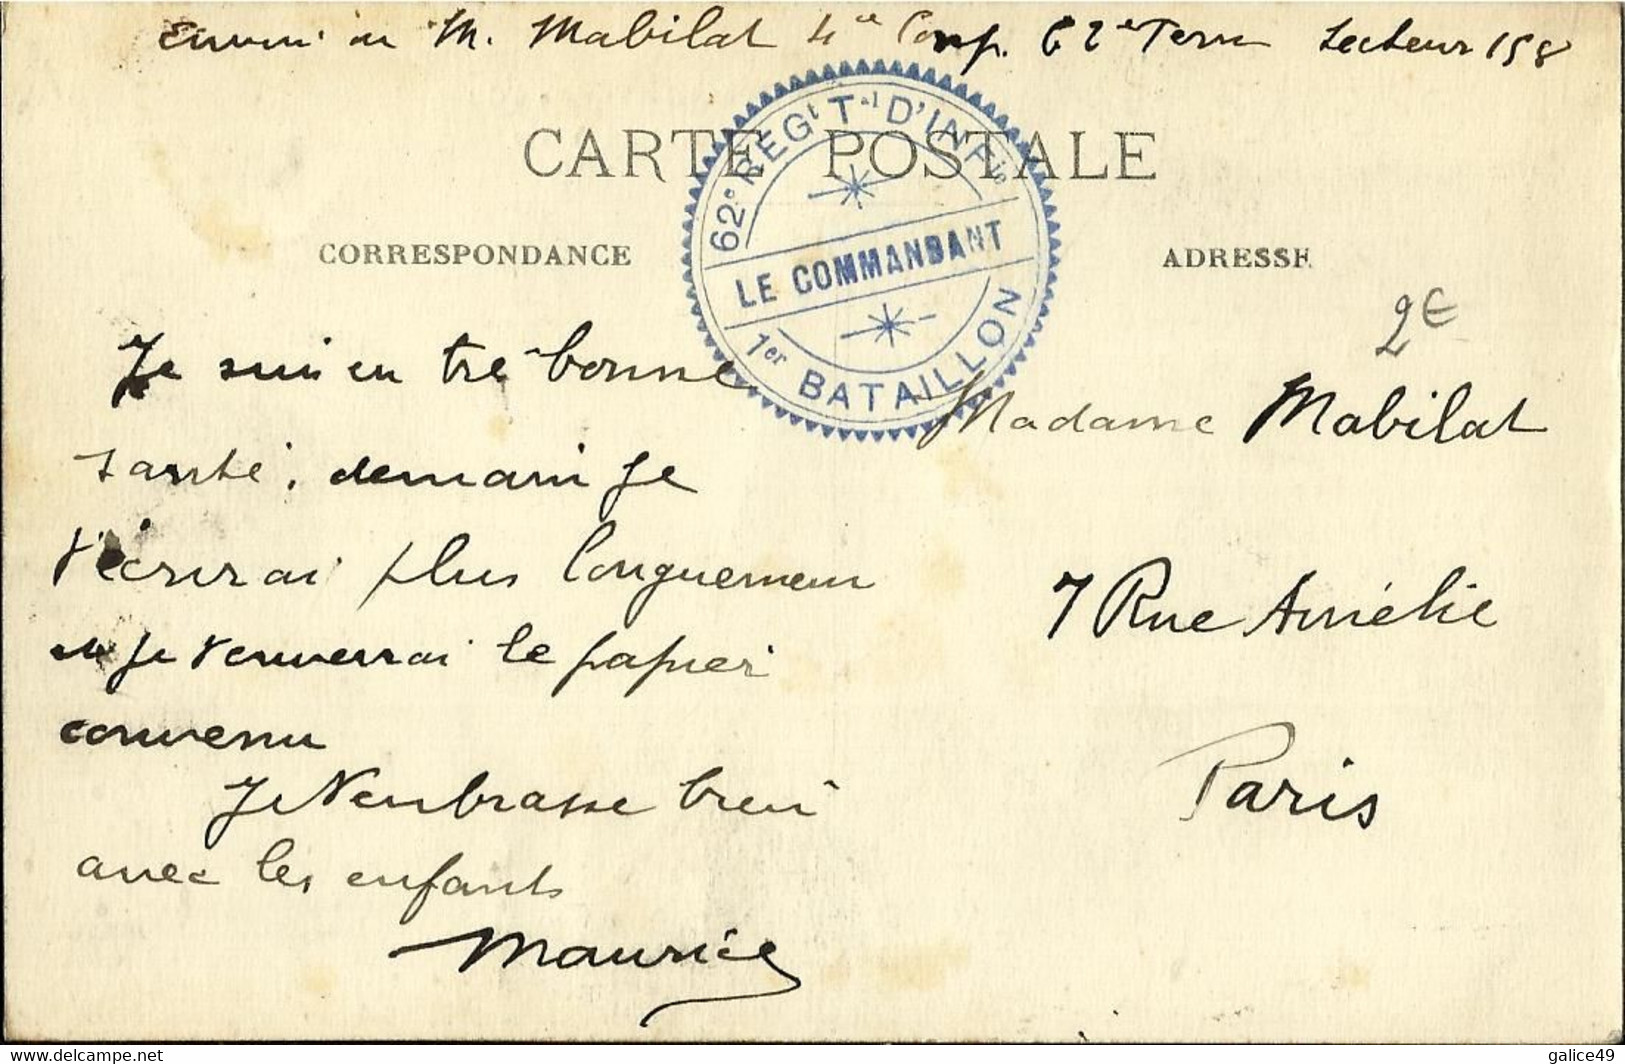 Envoi de M. Mabilat 4e Comp. 62e Terr Secteur 158
CARTE POSTALE
62e RÉGt Tal D'INFie
LE COMMANDANT
1er BATAILLON
CORRESPONDANCE
ADRESSE
2€
Je suis en trè bonne
santé, demain je
t'écrirai plus longuement
et je t'enverrai le papier
convenu
Je t'embrasse bien
avec les enfants
Maurice
Madame Mabilat
7 Rue Amélie
Paris
delcampe.net
galice49